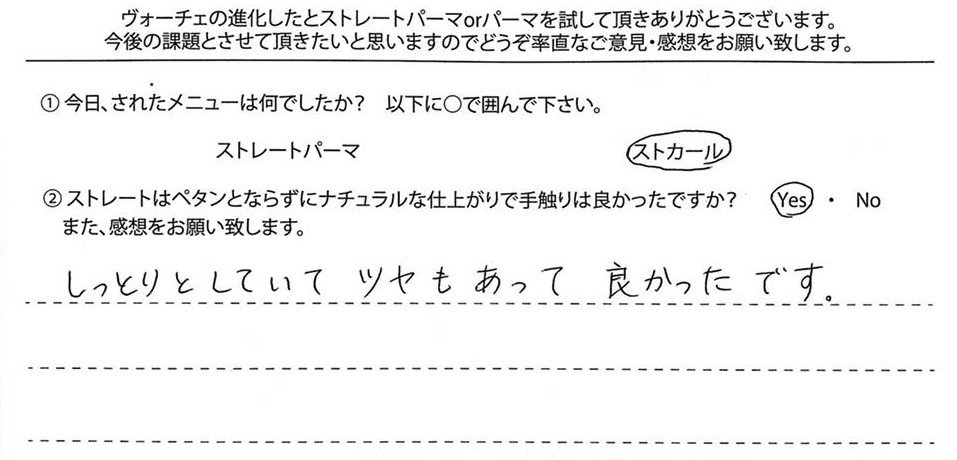 ヴォーチェの進化したとストレートパーマorパーマを試して頂きありがとうございます。
今後の課題とさせて頂きたいと思いますのでどうぞ率直なご意見・感想をお願い致します。
① 今日、されたメニューは何でしたか？ 以下に○で囲んで下さい。
ストレートパーマ ストカール
② ストレートはペタンとならずにナチュラルな仕上がりで手触りは良かったですか？ Yes ・ No
また、感想をお願い致します。
しっとりとしていて ツヤもあって 良かったです。